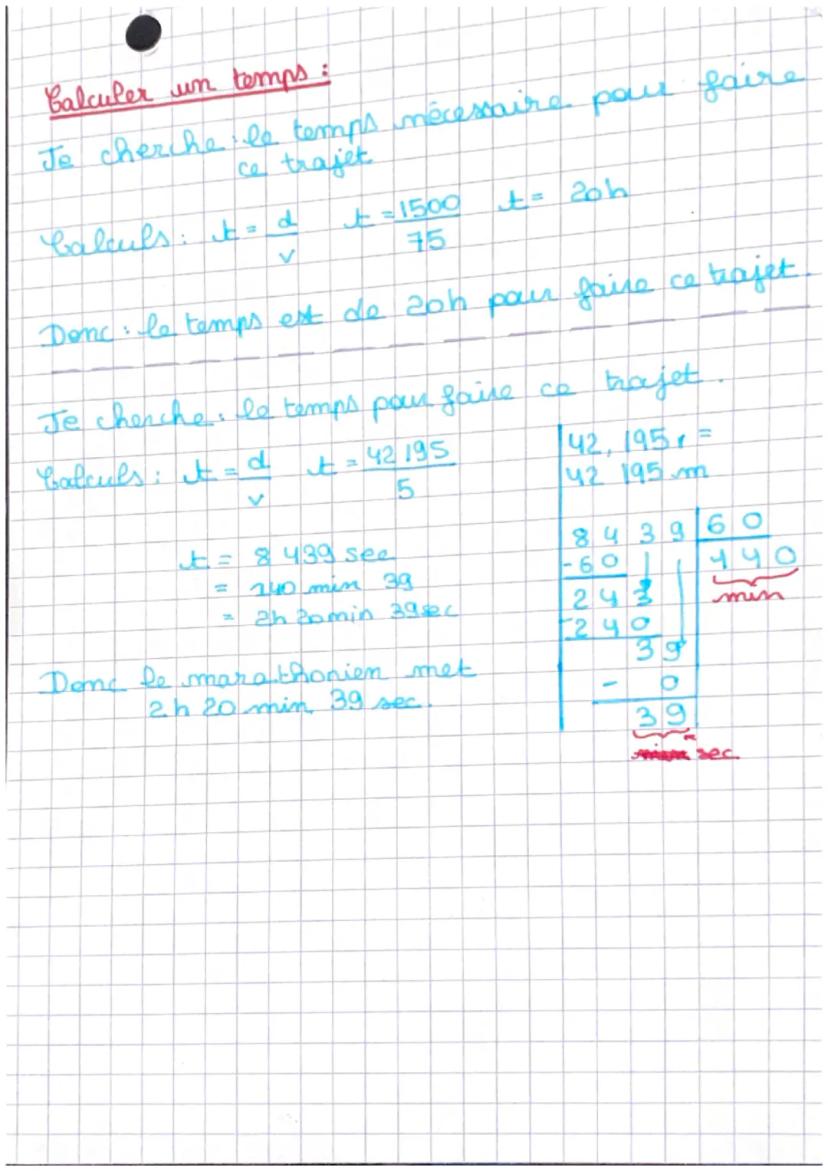 Calculer un temps :
Je cherche : le temps nécessaire pour faire
ce trajet
Calculs : t = d/v t = 1500/75 t = 20h
Donc : le temps est de 20h pour faire ce trajet.
Je cherche : le temps pour faire ce trajet.
Calculs : t = d/v t = 42 195/5
t = 8 439 sec
= 140 min 39
= 2h 20min 39sec
Donc le marathonien met
2 h 20 min 39 sec.
42, 195 =
42 195 m
8 4 3 9 | 6 0
- 6 0 | 1 4 0
min
2 4 3
- 2 4 0
3 9
- 0
3 9
sec